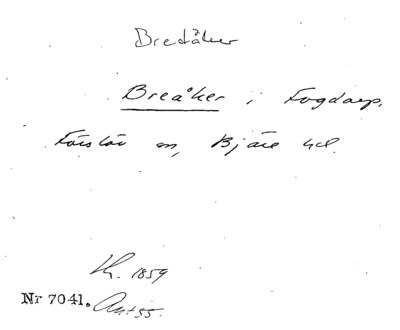 Bredåker
Breåker i Fogdarp,
Förslöv sn, Bjäre hd.
Lk. 1859
Nr 7041. Avt 55.